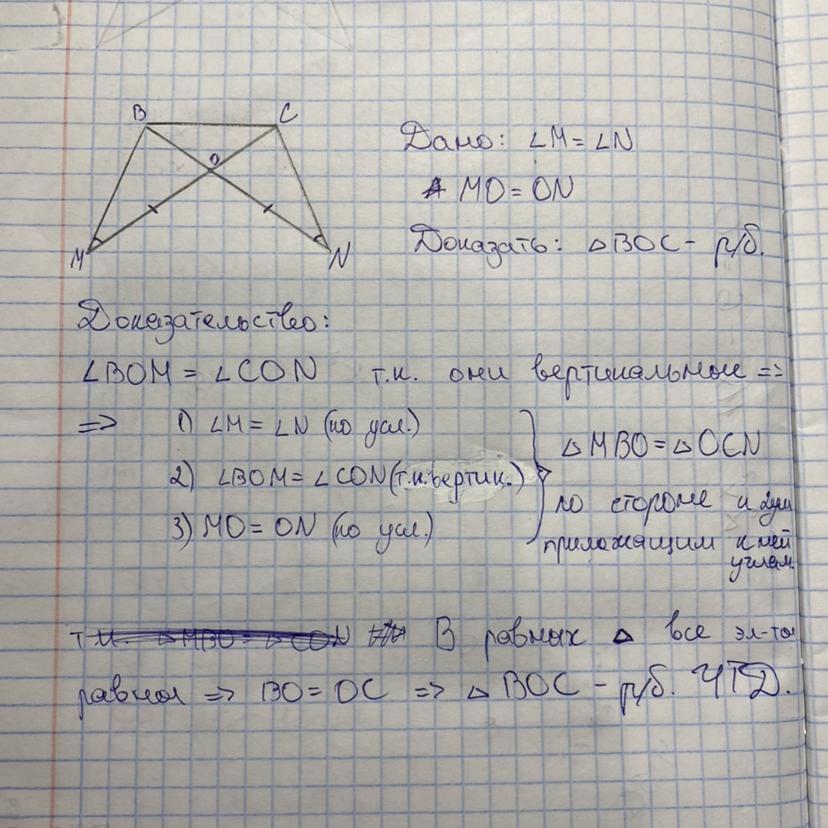 B C
O
M N
Дано: ∠M = ∠N
MO = ON
Доказать: △BOC - р/б.
Доказательство:
∠BOM = ∠CON т.к. они вертикальные =>
=> 1) ∠M = ∠N (по усл.)
2) ∠BOM = ∠CON (т.к. вертик.)
3) MO = ON (по усл.)
△MBO = △OCN
по стороне и двум
прилежащим к ней
углам.
т.к. △MBO = △CON В равных △ все эл-ты
равны => BO = OC => △BOC - р/б. ЧТД.